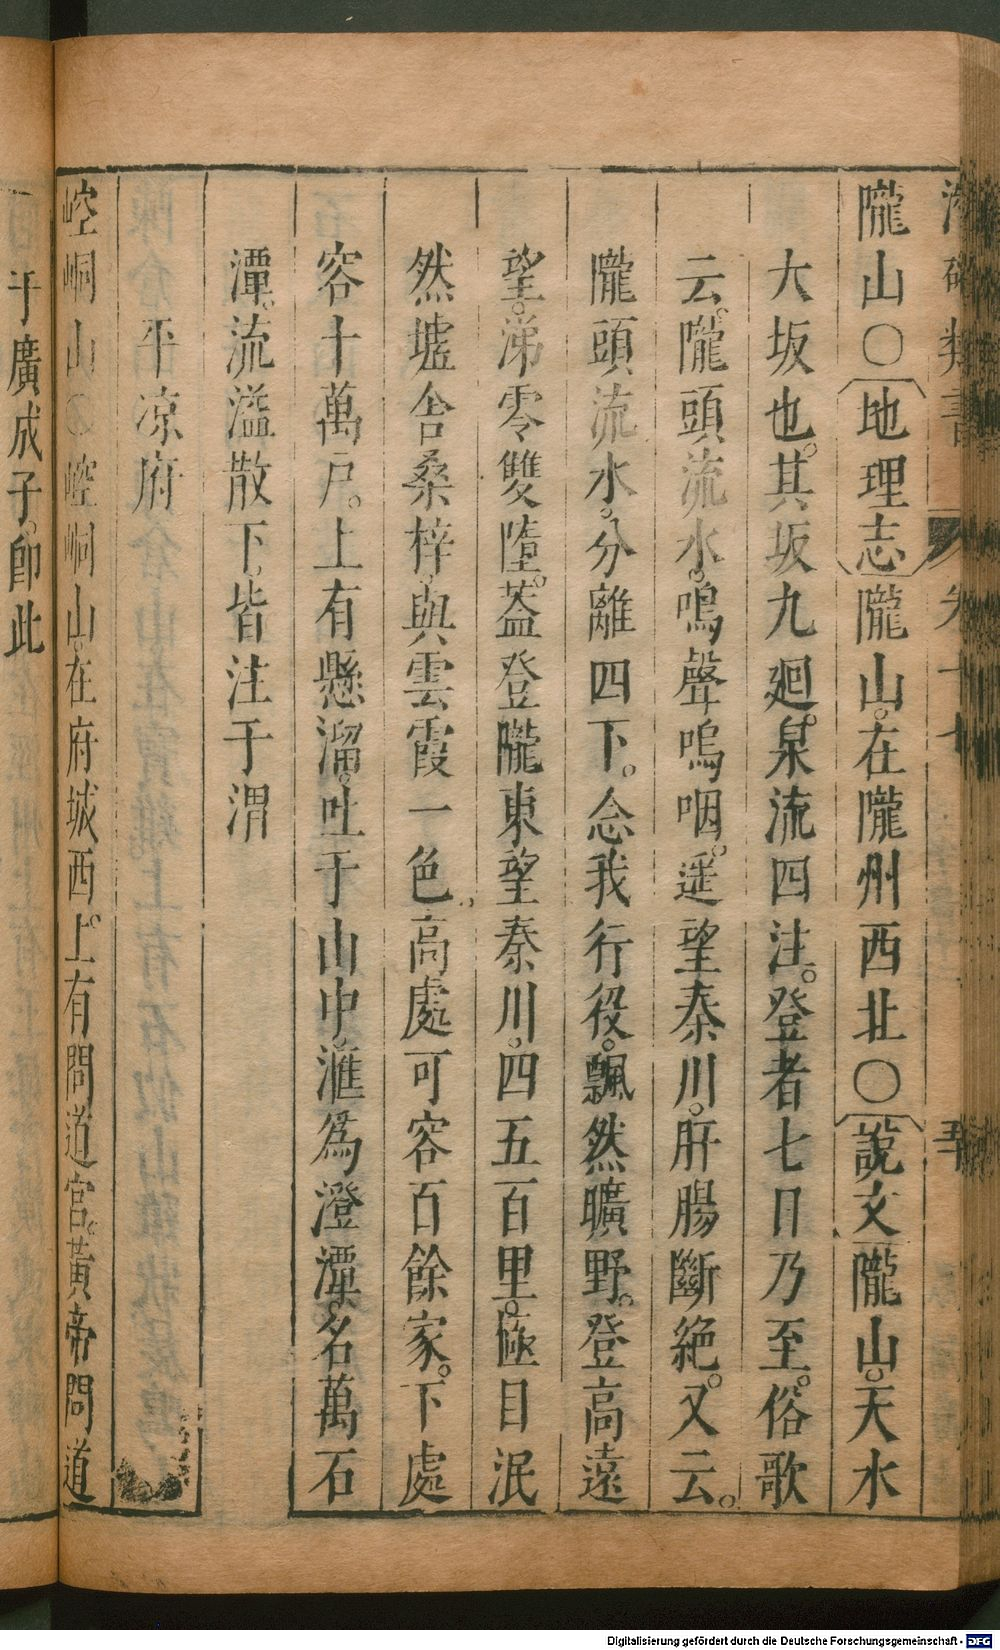 隴山〇地理志隴山。在隴州西北〇說文隴山。天水
大坂也。其坂九廻。泉流四注。登者七日乃至。俗歌
云。隴頭流水。鳴聲嗚咽。遥望秦川。肝腸斷絶。又云。
隴頭流水。分離四下。念我行役。飄然曠野。登高遠
望。涕零雙墮。葢登隴東望秦川。四五百里。極目泯
然。墟舍桑梓。與雲霞一色。高處可容百餘家。下處
容十萬戸。上有懸溜。吐于山中。滙爲澄潭。名萬石
潭。流溢散下。皆注于渭
平凉府
崆峒山〇崆峒山。在府城西。上有問道宮。黃帝問道
于廣成子。卽此
卷十七
五十
Digitalisierung gefördert durch die Deutsche Forschungsgemeinschaft - DFG